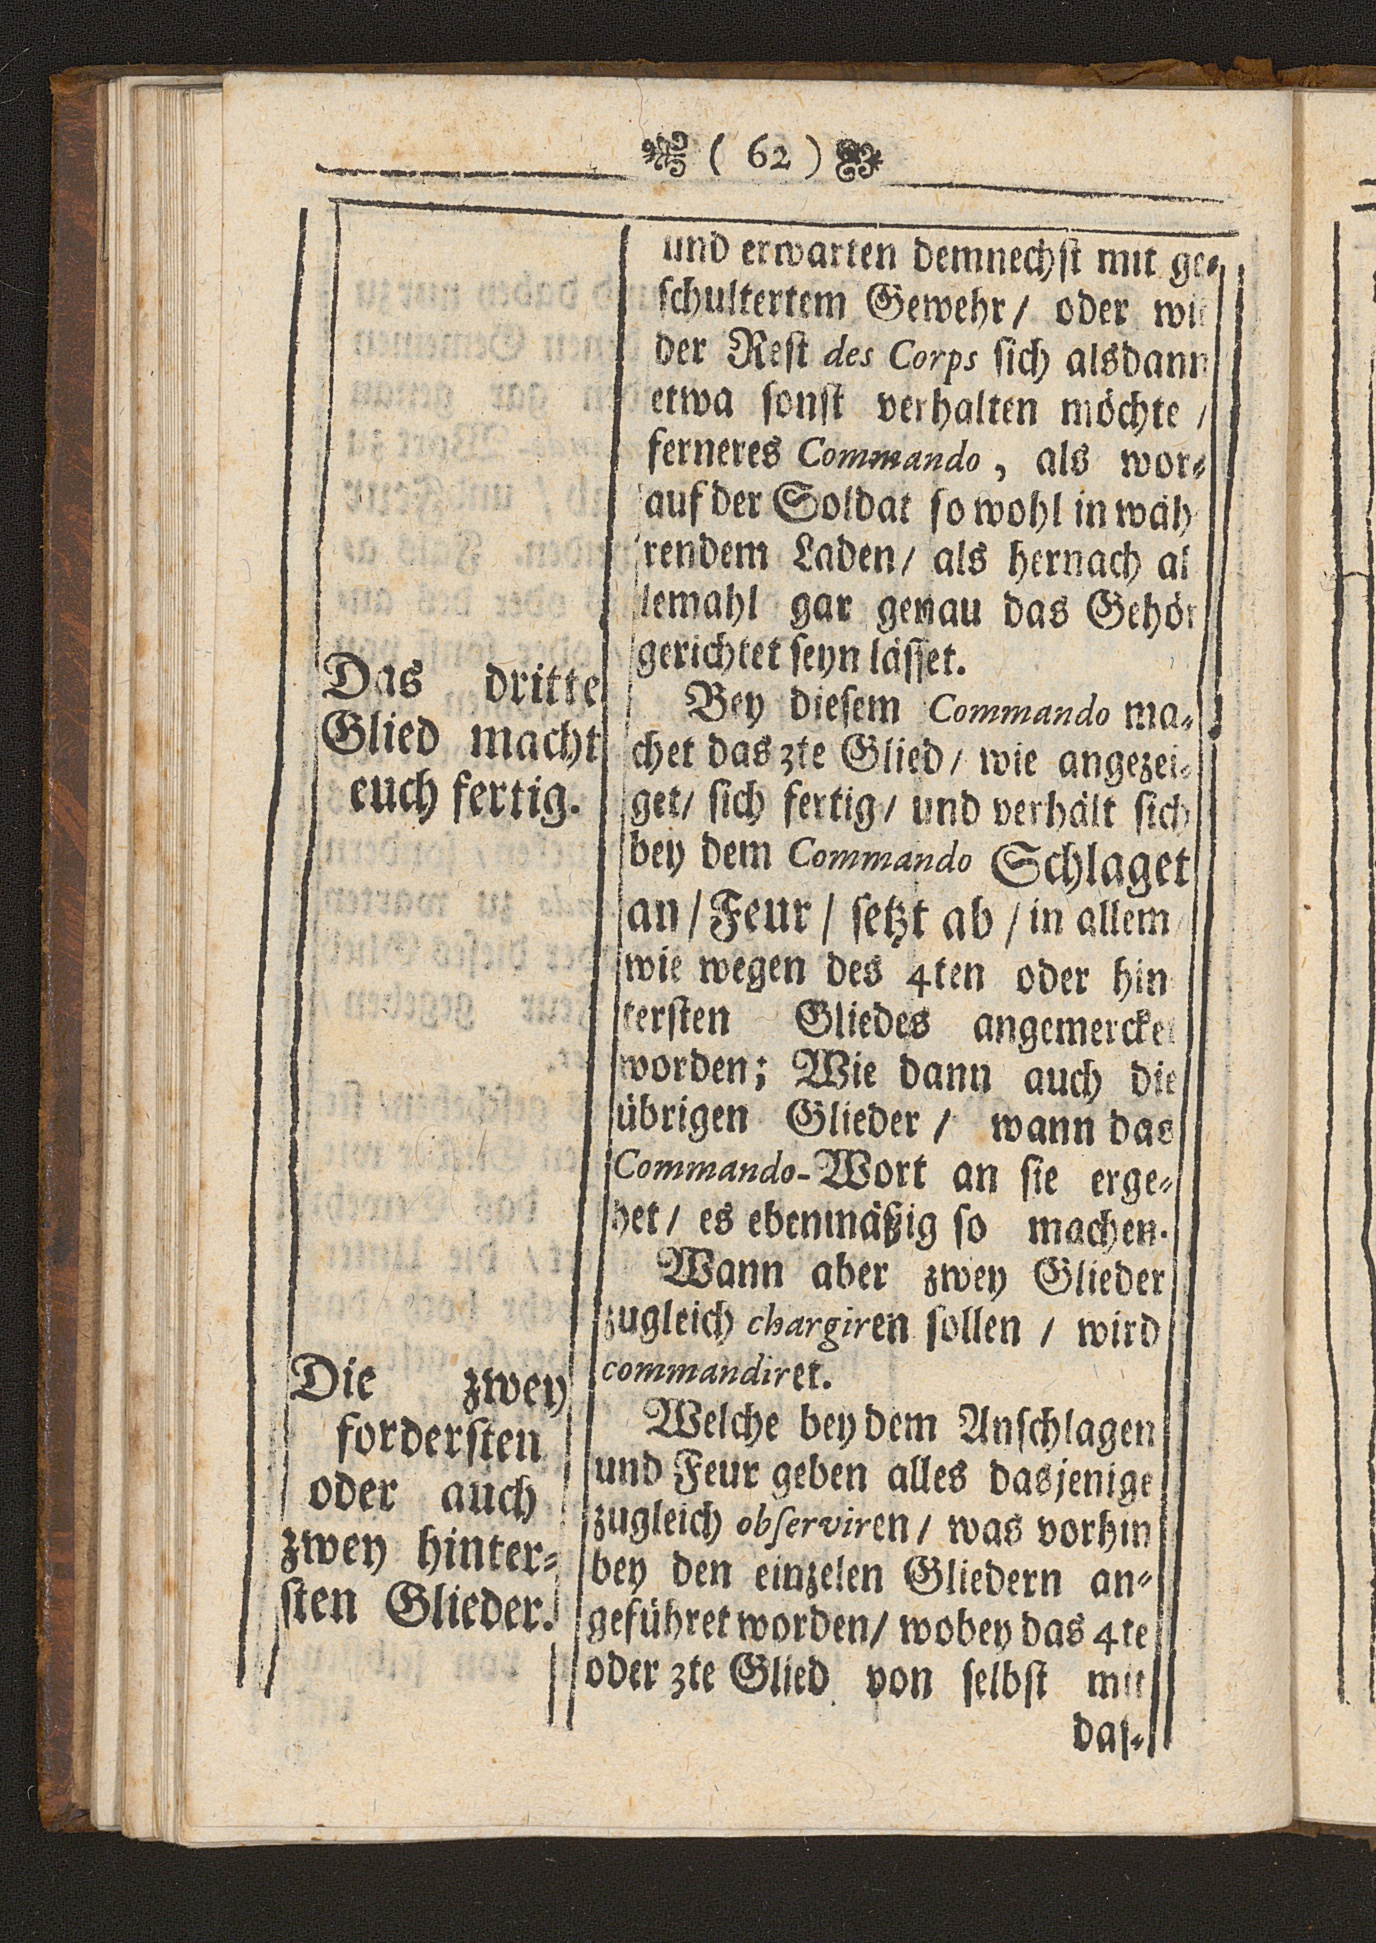 ( 62 )
und erwarten demnechst mit ge-
schultertem Gewehr/ oder wie
der Rest des Corps sich alsdann
etwa sonst verhalten möchte /
ferneres Commando, als wor-
auf der Soldat so wohl in wäh
rendem Laden/ als hernach al
lemahl gar genau das Gehör
gerichtet seyn lässet.
Das dritte
Glied macht
euch fertig.
Bey diesem Commando ma-
chet das 3te Glied/ wie angezei-
get/ sich fertig/ und verhält sich
bey dem Commando Schlaget
an/ Feur/ setzt ab/ in allem
wie wegen des 4ten oder hin
tersten Gliedes angemercket
worden; Wie dann auch die
übrigen Glieder/ wann das
Commando-Wort an sie erge-
het/ es ebenmäßig so machen.
Wann aber zwey Glieder
zugleich chargiren sollen / wird
commandiret.
Die zwey
fordersten
oder auch
zwey hinter-
sten Glieder.
Welche bey dem Anschlagen
und Feur geben alles dasjenige
zugleich observiren/ was vorhin
bey den einzelen Gliedern an-
geführet worden/ wobey das 4te
oder 3te Glied von selbst mit
das-